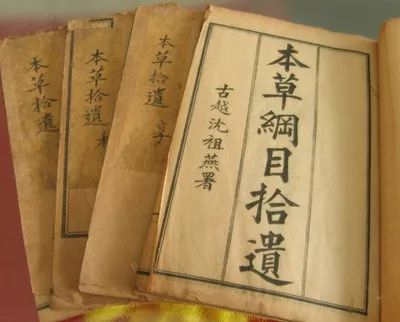 本草綱目拾遺
古越沈祖燕署
本草拾遺
本草拾遺
本草拾遺